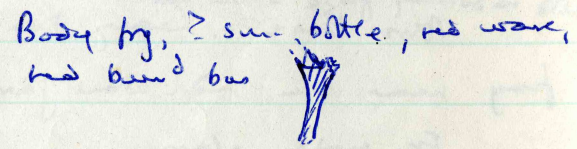 Body frg, ? sm. bottle, red ware,
red burnd bas